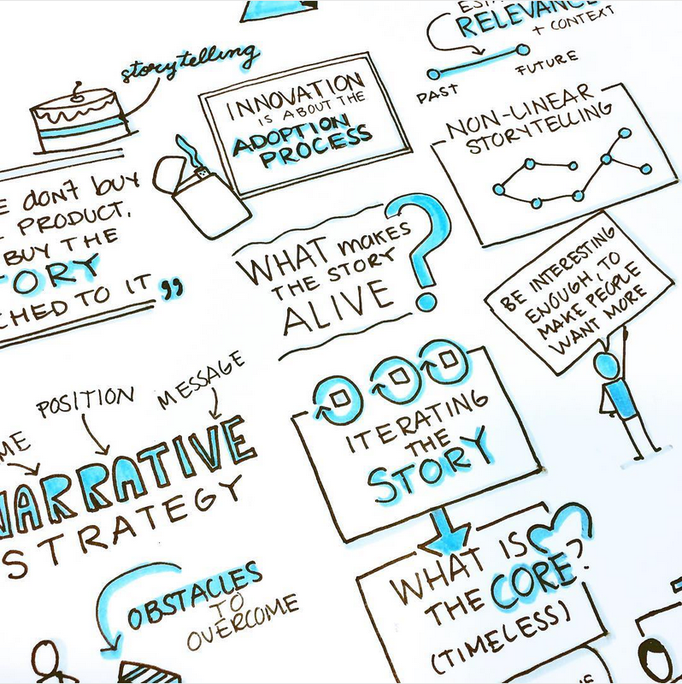 storytelling
RELEVANCE
+ CONTEXT
PAST
FUTURE
INNOVATION
IS ABOUT THE
ADOPTION
PROCESS
NON-LINEAR
STORYTELLING
DON'T BUY
PRODUCT,
BUY THE
TO IT"
WHAT makes
THE STORY
ALIVE
?
BE INTERESTING
ENOUGH, TO
MAKE PEOPLE
WANT MORE
POSITION
MESSAGE
NARRATIVE
STRATEGY
ITERATING
THE
STORY
WHAT IS
THE CORE?
(TIMELESS)
OBSTACLES
TO
OVERCOME